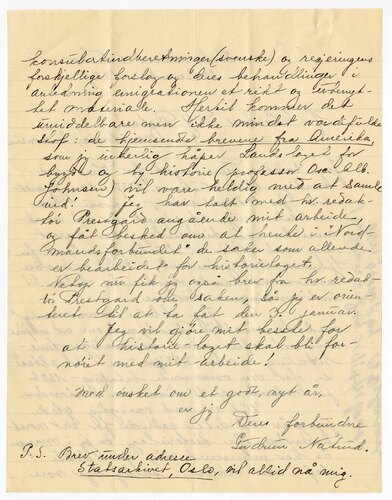 konsulatindberetninger (svenske) og regjeringens
forskjellige forslag og deres behandlinger i
anledning emigrationen et rikt og ubenyt-
tet materiale. Hertil kommer det
umiddelbare men ikke mindst værdifulde
stof: de hjemsendte brevene fra Amerika,
som jeg inderlig håper Landslaget for
bygde og by historie (professor Osc. Alb.
Johnsen) vil være heldig med at samle
ind! Jeg har talt med hr. redak-
tør Prestgard angående mit arbeide,
og fåt besked om at hente i "Nord-
mandsforbundet" de saker som allerede
er bearbeidet for historielaget.
Netop nu fik jeg også brev fra hr. redak-
tør Prestgard om saken, så jeg er orien-
teret til at ta fat den 3. januar.
Jeg vil gjøre mit bedste for
at historie-laget skal bli for-
nøiet med mit arbeide!
Med ønsket om et godt, nyt år,
er jeg
Deres forbundne
Gudrun Natrud.
P.S. Brev under adresse
Statsarkivet, Oslo, vil altid nå mig.